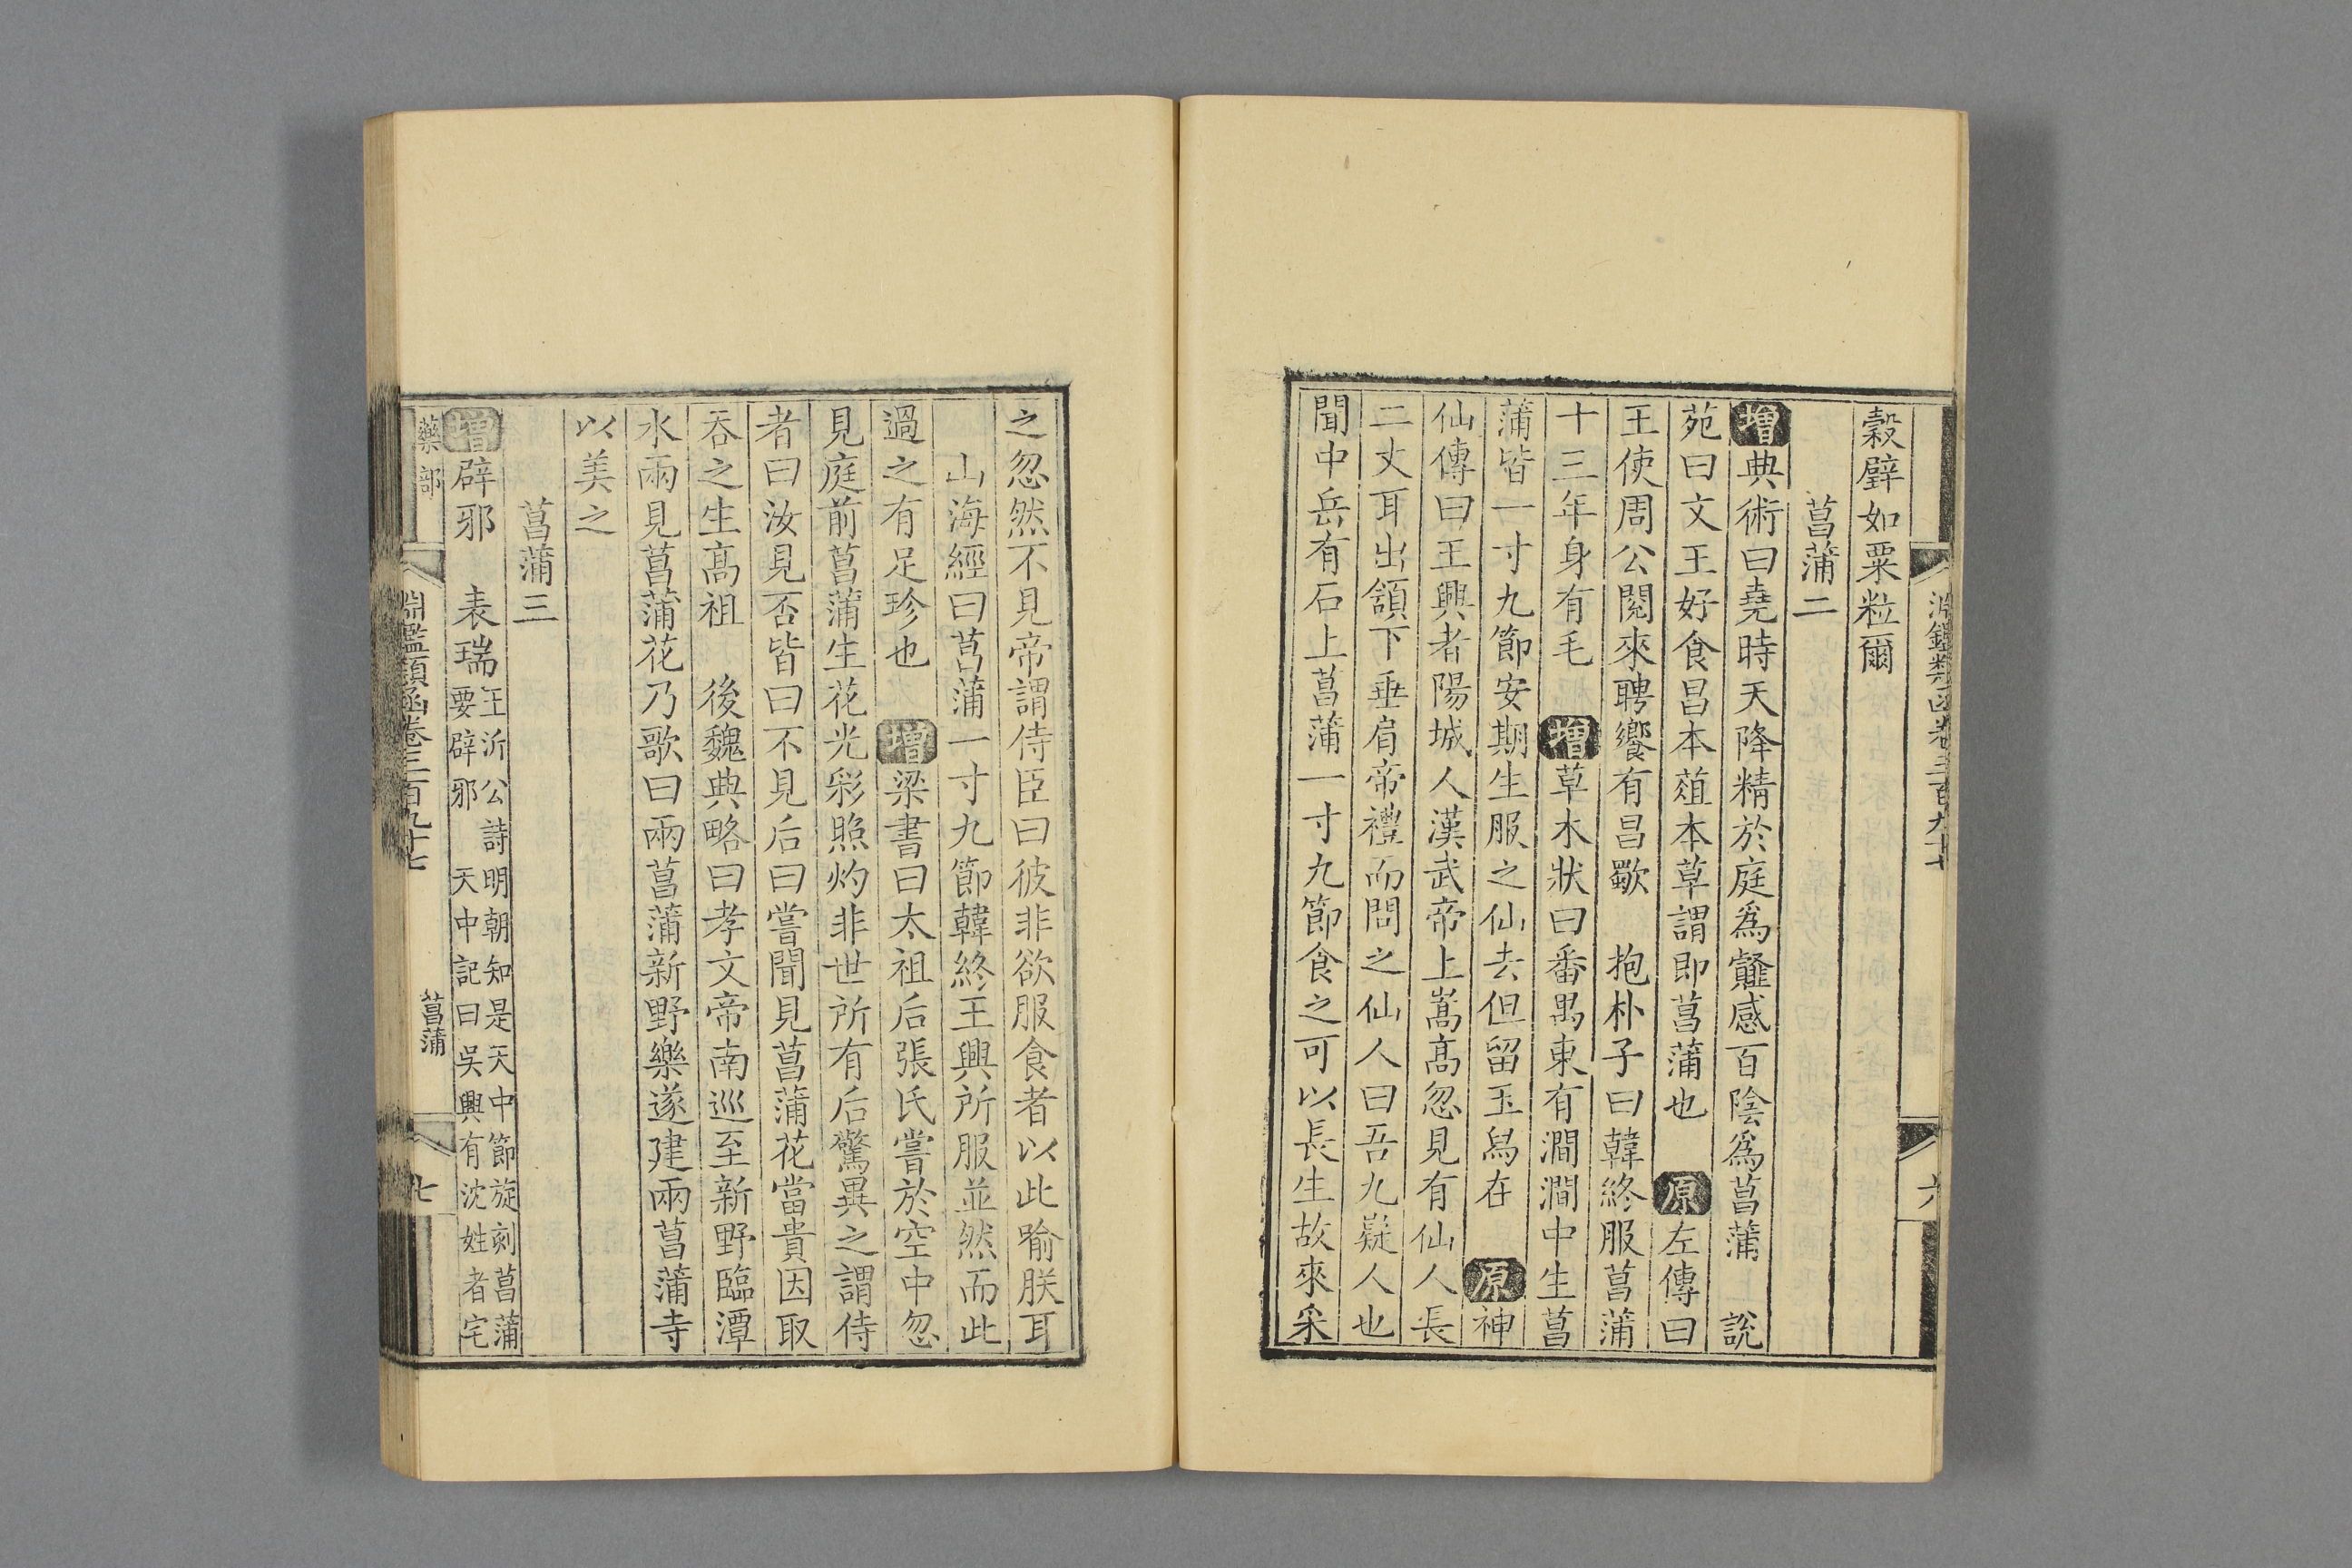 淵鑑類函卷三百九十七
六
穀璧如粟粒爾
菖蒲二
增典術曰堯時天降精於庭爲韰感百陰爲菖蒲 說
苑曰文王好食昌本葅本草謂即菖蒲也 原左傳曰
王使周公閱來聘饗有昌歜 抱朴子曰韓終服菖蒲
十三年身有毛 增草木狀曰番禺東有澗澗中生菖
蒲皆一寸九節安期生服之仙去但留玉舄在 原神
仙傳曰王興者陽城人漢武帝上嵩高忽見有仙人長
二丈耳出頷下垂肩帝禮而問之仙人曰吾九嶷人也
聞中岳有石上菖蒲一寸九節食之可以長生故來采
之忽然不見帝謂侍臣曰彼非欲服食者以此喻朕耳
山海經曰菖蒲一寸九節韓終王興所服並然而此
過之有足珍也 增梁書曰太祖后張氏嘗於空中忽
見庭前菖蒲生花光彩照灼非世所有后驚異之謂侍
者曰汝見否皆曰不見后曰嘗聞見菖蒲花當貴因取
吞之生高祖 後魏典略曰孝文帝南巡至新野臨潭
水兩見菖蒲花乃歌曰兩菖蒲新野樂遂建兩菖蒲寺
以美之
菖蒲三
增辟邪 表瑞王沂公詩明朝知是天中節旋刻菖蒲
要辟邪 天中記曰吳興有沈姓者宅
藥部
淵鑑類函卷三百九十七
菖蒲
七